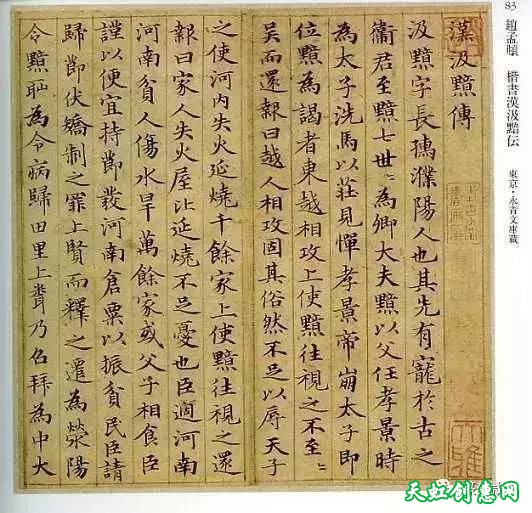 83 趙孟頫 楷書漢汲黯伝 東京·永青文庫蔵
漢汲黯傳
汲黯字長孺濮陽人也其先有寵於古之
衞君至黯七世=為卿大夫黯以父任孝景時
為太子洗馬以莊見憚孝景帝崩太子即
位黯為謁者東越相攻上使黯往視之不至=
吴而還報曰越人相攻固其俗然不足以辱天子
之使河内失火延燒千餘家上使黯往視之還
報曰家人失火屋比延燒不足憂也臣適河南
河南貧人傷水旱萬餘家或父子相食臣
謹以便宜持節發河南倉粟以振貧民臣請
歸節伏矯制之罪上賢而釋之遷為滎陽
令黯耻為令病歸田里上聞乃召拜為中大
天虹创意网